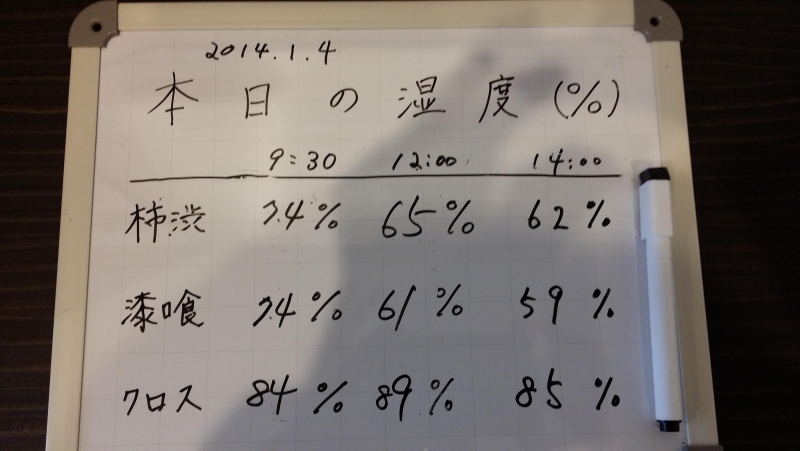 2014.1.4
本日の湿度(%)
9:30 12:00 14:00
柿渋 74% 65% 62%
漆喰 74% 61% 59%
クロス 84% 89% 85%